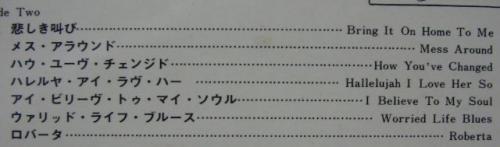 de Two
悲しき叫び Bring It On Home To Me
メス・アラウンド Mess Around
ハウ・ユーヴ・チェンジド How You've Changed
ハレルヤ・アイ・ラヴ・ハー Hallelujah I Love Her So
アイ・ビリーヴ・トゥ・マイ・ソウル I Believe To My Soul
ウァリッド・ライフ・ブルース Worried Life Blues
ロバータ Roberta